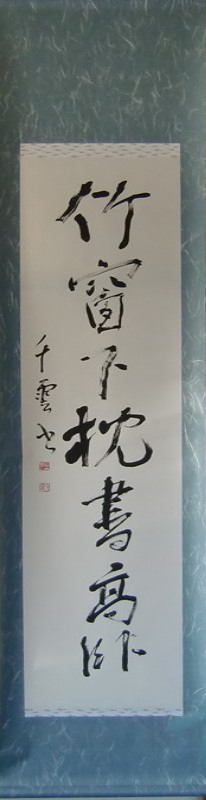 竹窗下枕書高臥
千雲書